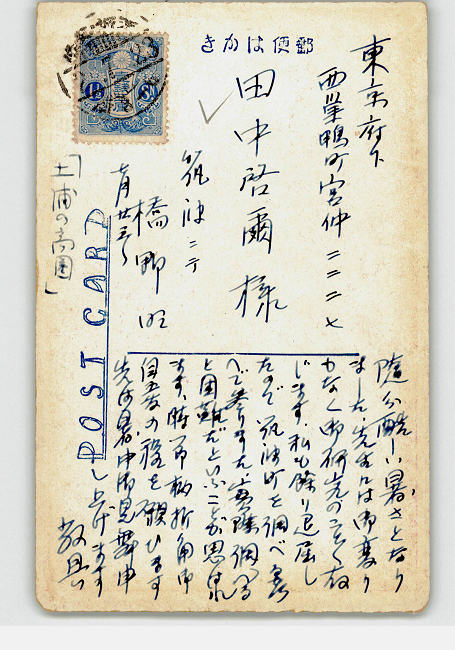 郵便はかき
東京府下
西巣鴨町宮仲二二二七
田中啓爾様
筑波ニテ
七月廿五日
「土浦の高圓」
POST CARD
随分酷い暑さとなり
ました 先生には御変り
もなく御研究のことゝ存
じます 私も余り退屈し
たので筑波町を調べ
て参りました 実際調べる
と困難だといふことが思はれ
ます 時節柄折角御
自愛の程を願ひます
先は暑中御見舞申
し上げます
敬具